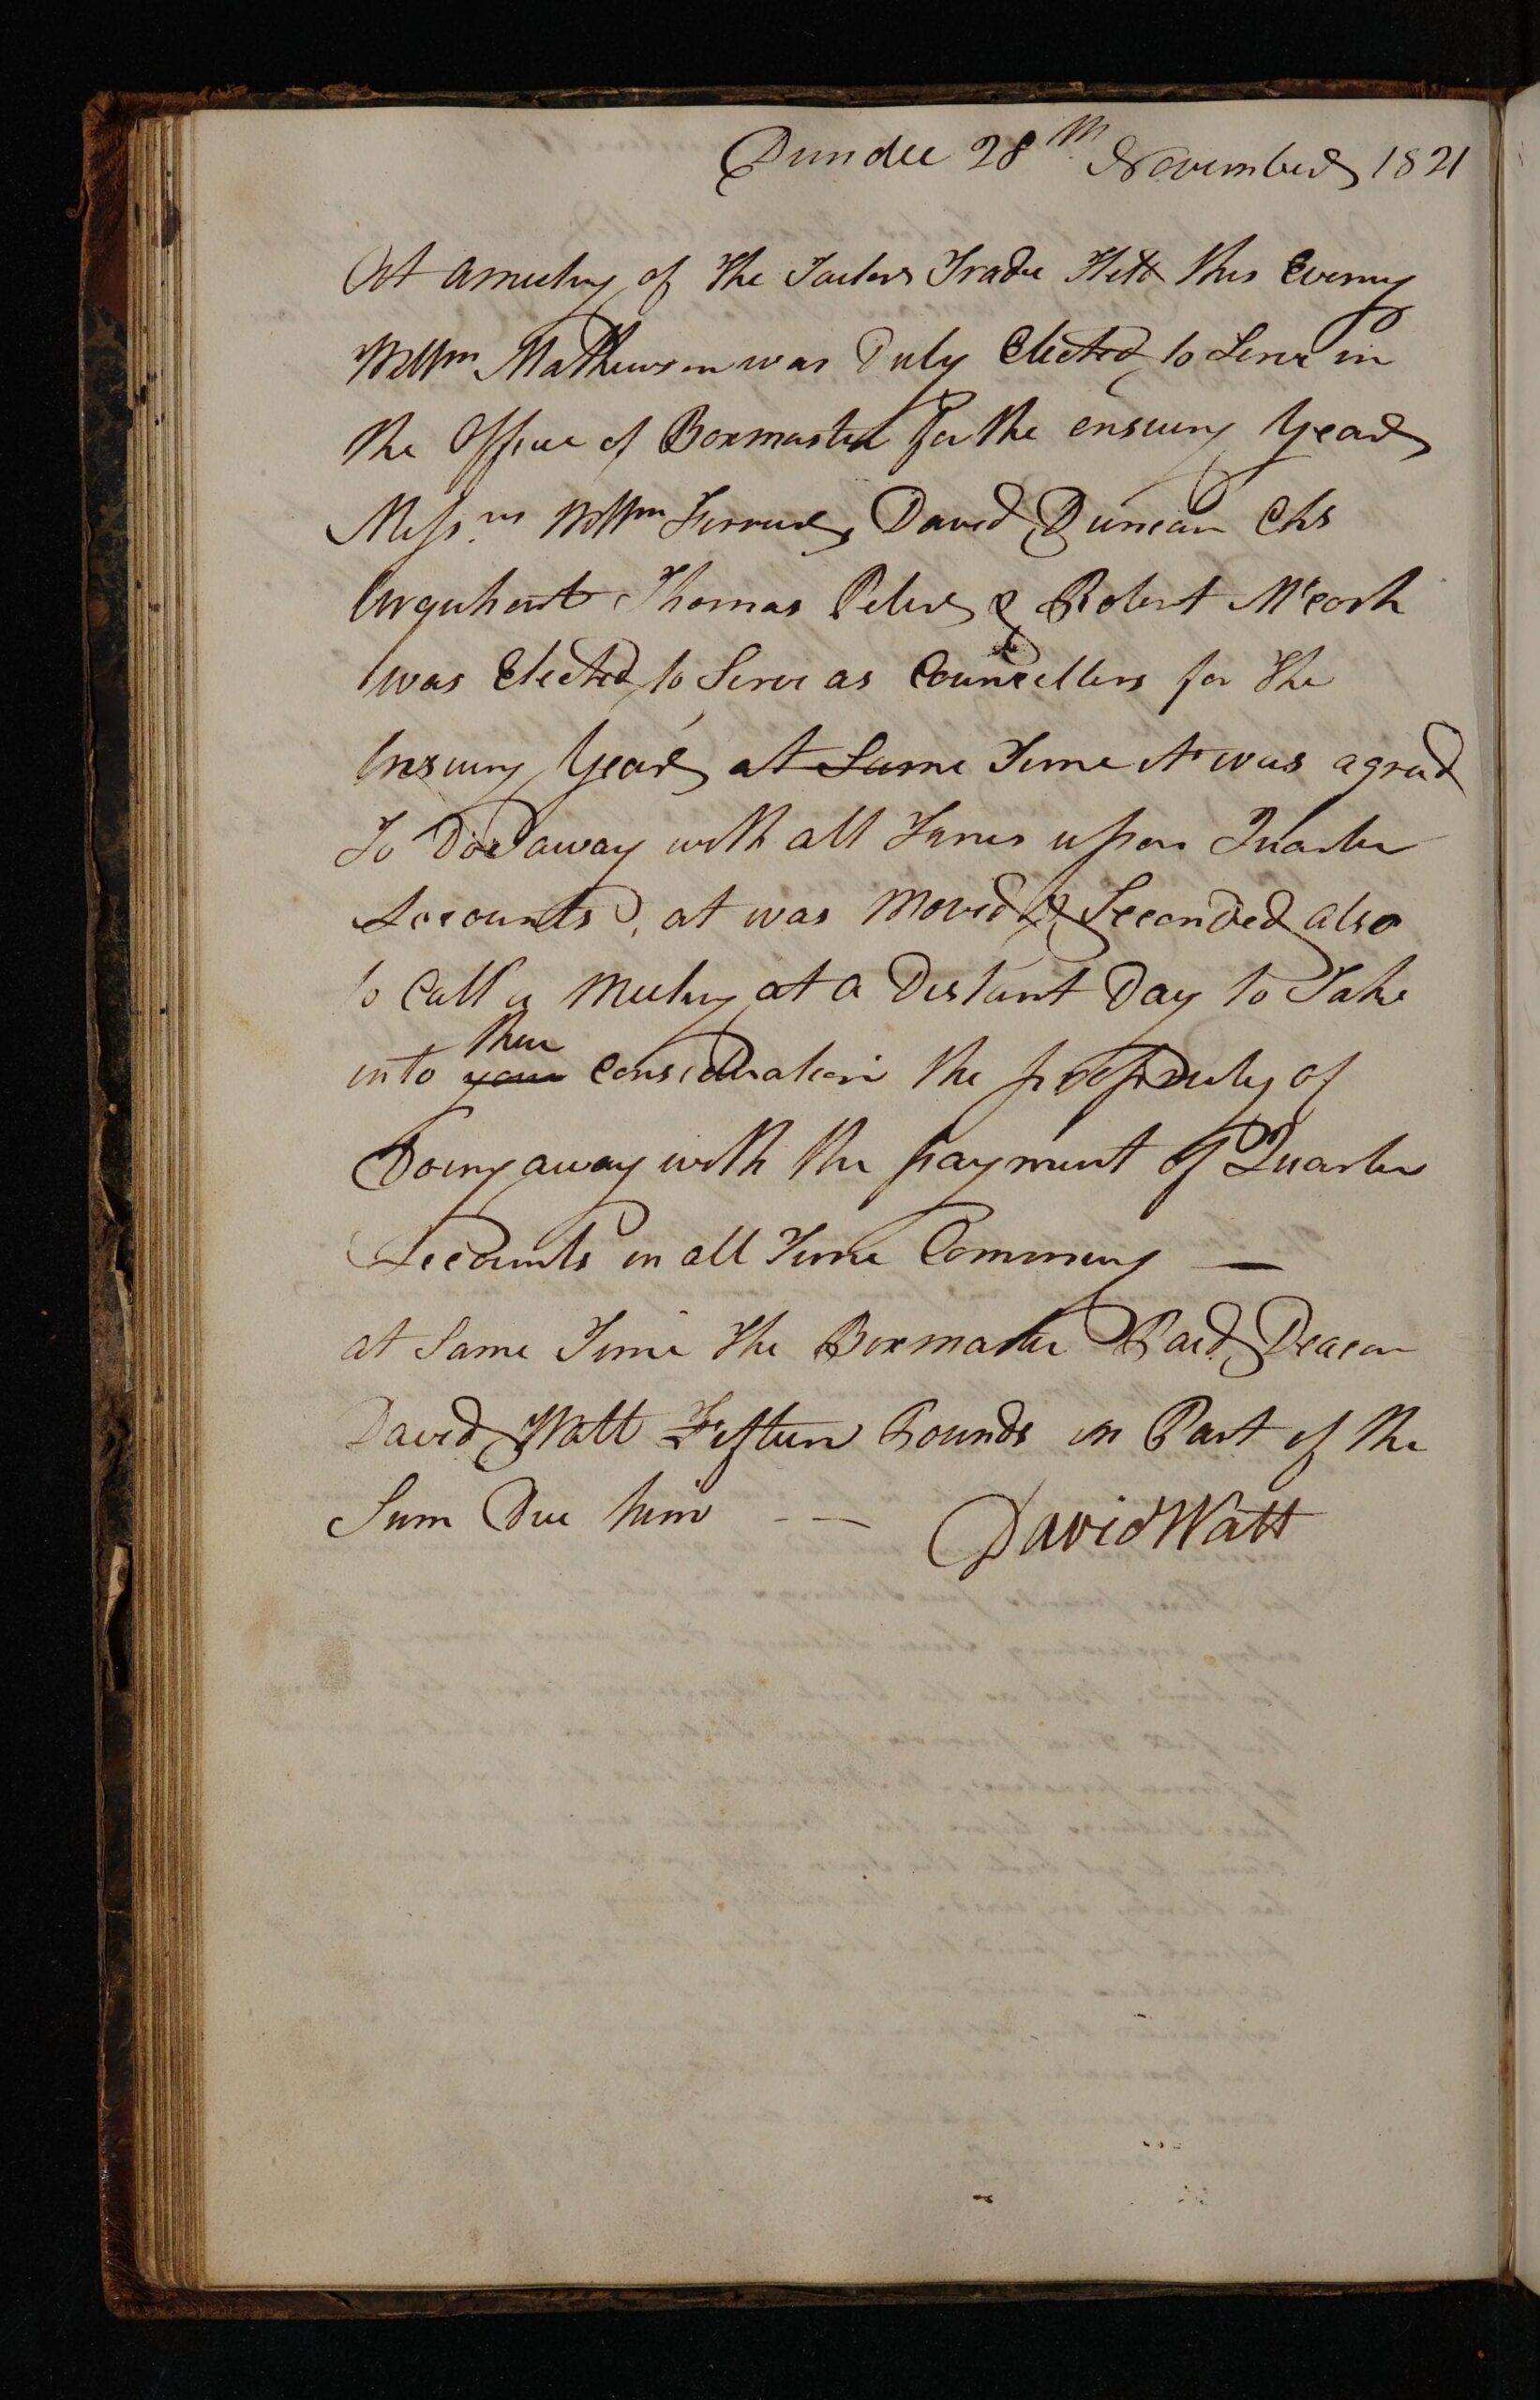 Dundee 28th November 1821
At ameeting of the Tailors Trade Held this Evening
Willm Mathewson was Duly Elected to Serve in
the Office of Boxmaster for the ensuing Year
Messrs Willm David Duncan Chs
Urquhart Thomas Peter & Robert McCosh
was Elected to Serve as Councellers for the
Ensuing Year at Same Time it was agreed
To Do away with all Fines upon Quarter
Accounts, at was Moved & Seconded also
to Call a Meeting at a Distant Day to Take
into your their Consideration the propriety of
Doing away with the payment of Quarter
Accounts in all Time Comming —
at Same Time the Boxmaster Paid Deacon
David Watt Fifteen Pounds in Part of the
Sum Due him - — David Watt